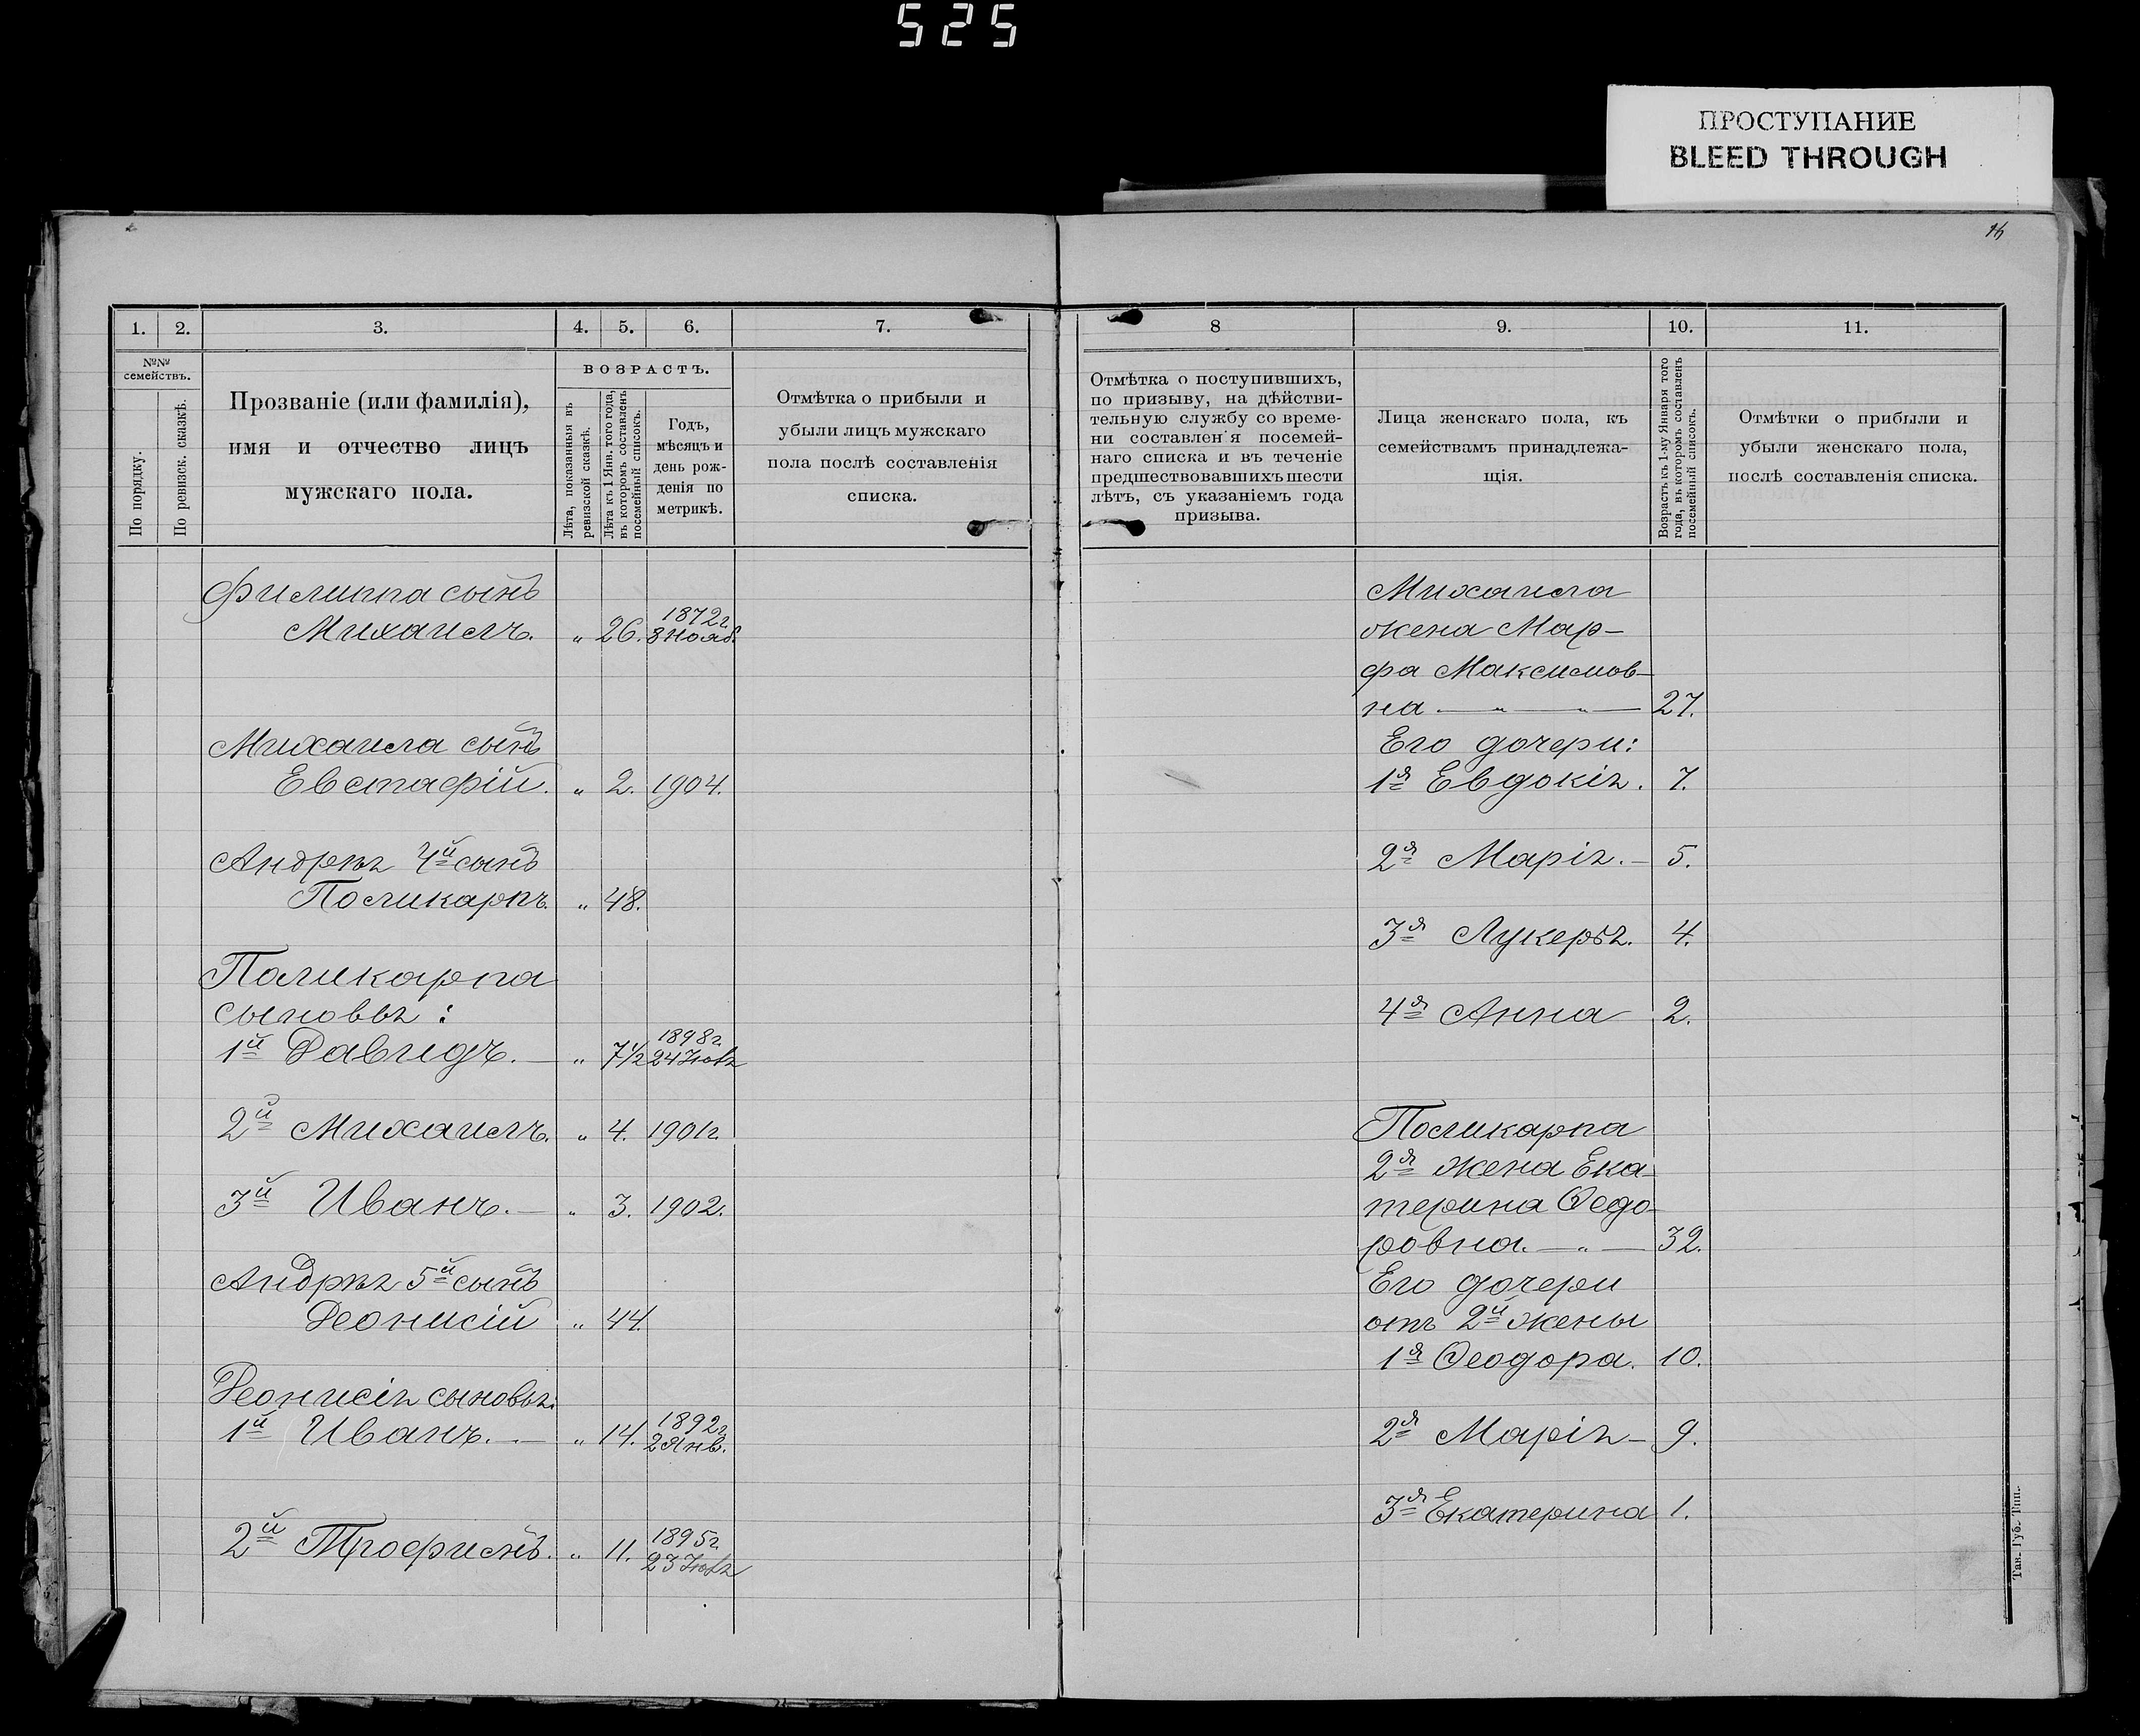 525
ПРОСТУПАНИЕ
BLEED THROUGH
16
1.
2.
3.
4.
5.
6.
7.
№№
семействъ.
По порядку.
По ревизск. сказкѣ.
Прозваніе (или фамилія),
имя и отчество лицъ
мужскаго пола.
ВОЗРАСТЪ.
Лѣта, показанныя въ
ревизской сказкѣ.
Лѣта къ 1 Янв. того года,
въ которомъ составленъ
посемейный списокъ.
Годъ,
мѣсяцъ и
день рож-
денія по
метрикѣ.
Отмѣтка о прибыли и
убыли лицъ мужскаго
пола послѣ составленія
списка.
Филиппа сынъ
Михаилъ. " 26. 1872г. 8 Нояб.
Михаила сынъ
Евстафій. " 2. 1904.
Андрея 4й сынъ
Поликарпъ. " 48.
Поликарпа
сыновья:
1й Давидъ. — " 7½ 1898г. 24 Іюля
2й Михаилъ. " 4. 1901г.
3й Иванъ. — " 3. 1902.
Андрея 5й сынъ
Деонисій " 44.
Деонисія сыновья:
1й Иванъ. — " 14. 1892г. 2 Янв.
2й Трофимъ. " 11. 1895г. 23 Іюля
8
9.
10.
11.
Отмѣтка о поступившихъ,
по призыву, на дѣйстви-
тельную службу со време-
ни составленія посемей-
наго списка и въ теченіе
предшествовавшихъ шести
лѣтъ, съ указаніемъ года
призыва.
Лица женскаго пола, къ
семействамъ принадлежа-
щія.
Возрастъ къ 1-му Января того
года, въ которомъ составленъ
посемейный списокъ.
Отмѣтки о прибыли и
убыли женскаго пола,
послѣ составленія списка.
Михаила
жена Мар-
фа Максимов-
на — " — " — 27.
Его дочери:
1я Евдокія. 7.
2я Марія. — 5.
3я Лукерья. 4.
4я Анна 2.
Поликарпа
2я жена Ека-
терина Ѳедо-
ровна. — " — 32.
Его дочери
отъ 2й жены
1я Ѳеодора. 10.
2я Марія — 9.
3я Екатерина 1.
Тав. Губ. Тип.